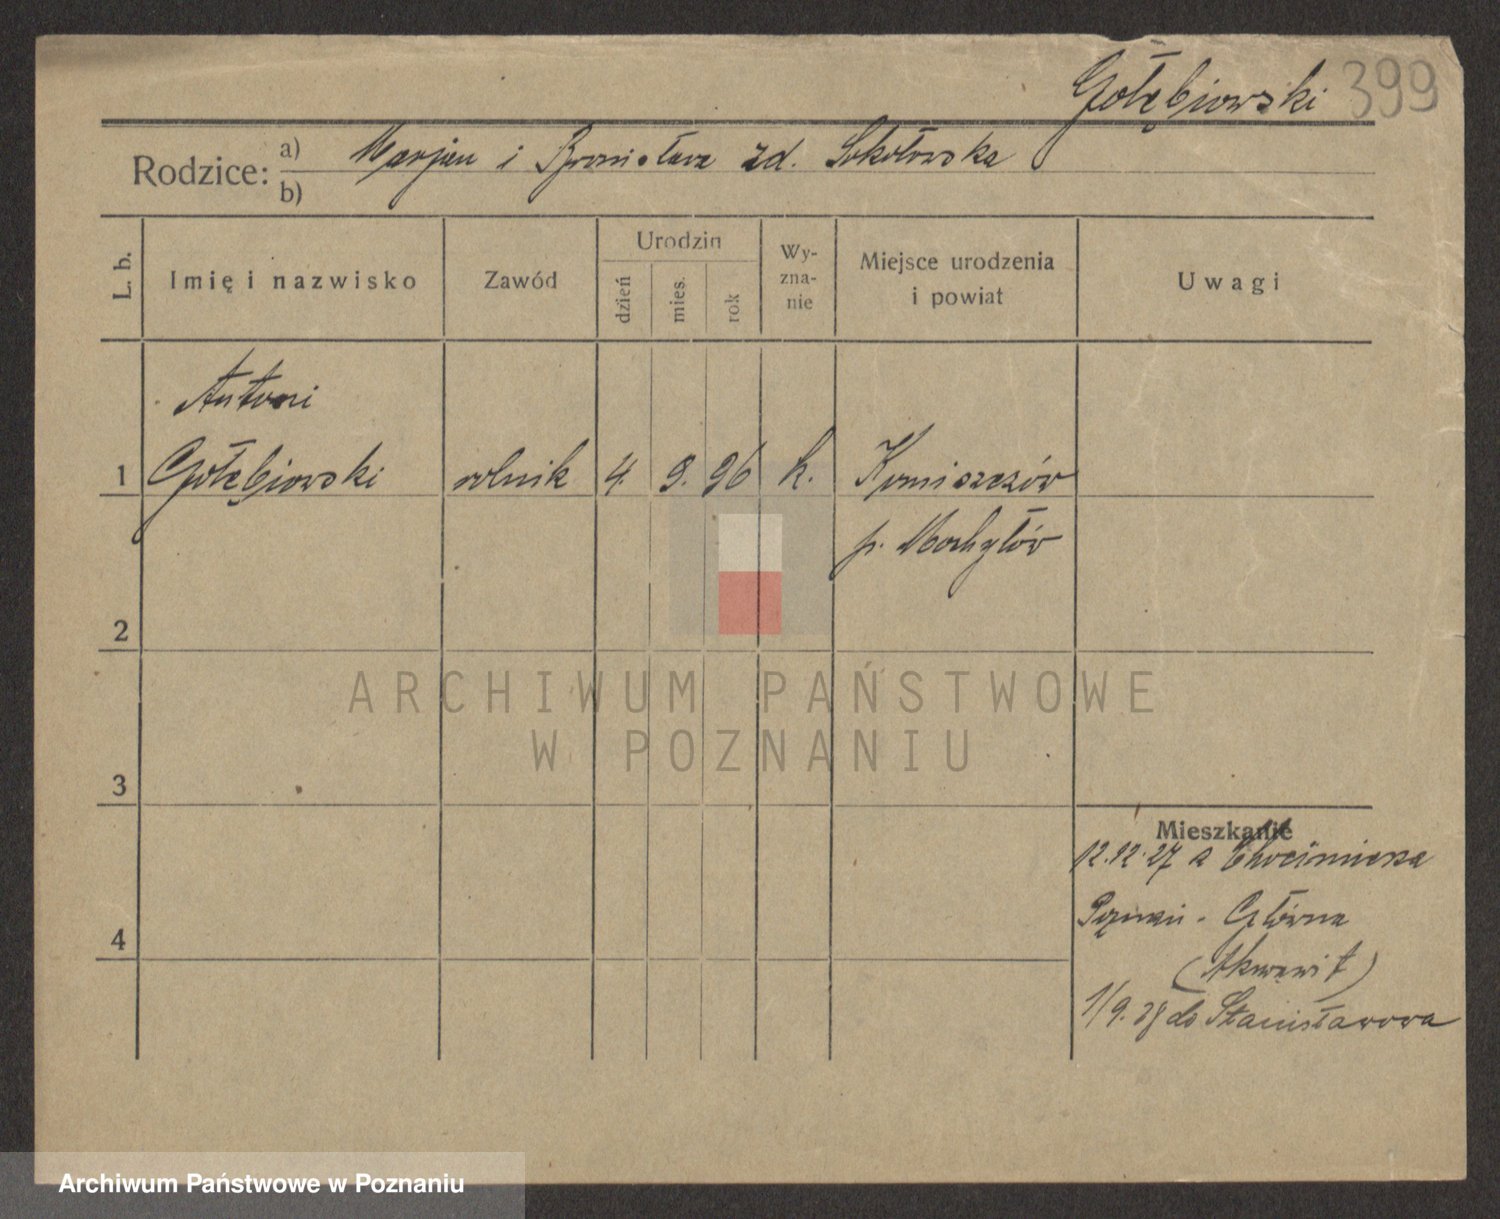 Gołębiowski 399
Rodzice: a) Marjan i Bronisława zd. Sokołowska
b)
L. b.
Imię i nazwisko
Zawód
Urodzin
dzień
mies.
rok
Wy-
zna-
nie
Miejsce urodzenia
i powiat
Uwagi
Antoni
1 Gołębiowski rolnik 4. 9. 96 k.
p.
2
ARCHIWUM PAŃSTWOWE
W POZNANIU
3
Mieszkanie
12.12.27 z
Poznań - Główna
4
(Akwawit)
1/9. do Stanisławowa
Archiwum Państwowe w Poznaniu